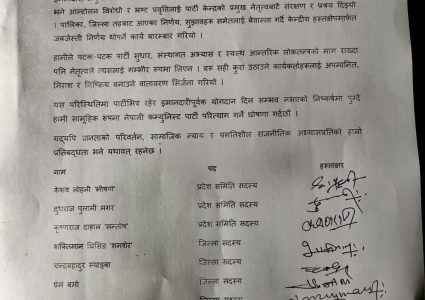 भने आन्दोलन विरोधी र भ्रष्ट प्रवृत्तिलाई पार्टी केन्द्रको प्रमुख नेतृत्वबाटै संरक्षण र प्रश्रय दिइयो
। पालिका, जिल्ला तहबाट आएका निर्णय, सुझावहरू समेतलाई बेवास्ता गर्दै केन्द्रीय हस्तक्षेपमार्फत
जबर्जस्ती निर्णय थोपर्ने कार्य बारम्बार गरियो ।
हामीले पटक-पटक पार्टी सुधार, संस्थागत अभ्यास र स्वस्थ आन्तरिक लोकतन्त्रको माग राख्दा
पनि नेतृत्वले त्यसलाई गम्भीर रूपमा लिएन । बरू सही कुरा उठाउने कार्यकर्ताहरूलाई अपमानित,
निराश र निष्क्रिय बनाउने वातावरण सिर्जना गरियो ।
यस परिस्थितिमा पार्टीभित्र रहेर इमानदारीपूर्वक योगदान दिन सम्भव नभएको निष्कर्षमा पुग्दै
हामी सामूहिक रूपमा नेपाली कम्युनिस्ट पार्टी परित्याग गर्ने घोषणा गर्दछौं ।
यद्यपि जनताको परिवर्तन, सामाजिक न्याय र प्रगतिशील राजनीतिक अभ्यासप्रतिको हाम्रो
प्रतिबद्धता भने यथावत् रहनेछ ।
नाम पद हस्ताक्षर
केशव लोहनी 'भीषण' प्रदेश समिति सदस्य
दुधराज पुलामी मगर प्रदेश समिति सदस्य
कृष्णराज दाहाल 'सन्तोष' प्रदेश समिति सदस्य
शक्तिमान घिसिङ 'समशेर' जिल्ला सदस्य
चन्द्रबहादुर स्याङ्बा जिल्ला सदस्य
प्रेम बर्मा जिल्ला सदस्य